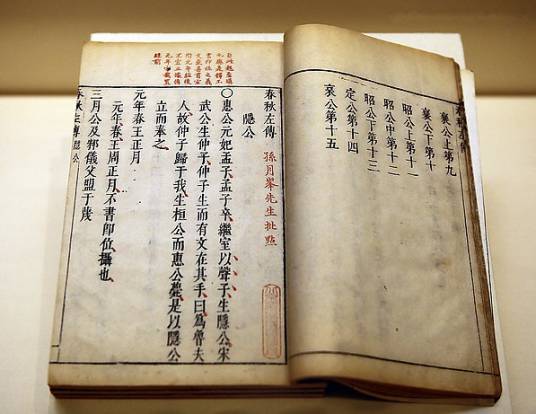 襄公上第九
襄公下第十
昭公上第十一
昭公中第十二
昭公下第十三
定公第十四
哀公第十五
春秋左傳
孫月峯先生批點
隱公
○惠公元妃孟子孟子卒繼室以聲子生隱公宋
武公生仲子仲子生而有文在其手曰爲魯夫
人故仲子歸于我生桓公而惠公薨是以隱公
立而奉之
元年春王正月
元年春王周正月不書卽位攝也
三月公及邾儀父盟于蔑
春秋左傳 隱公